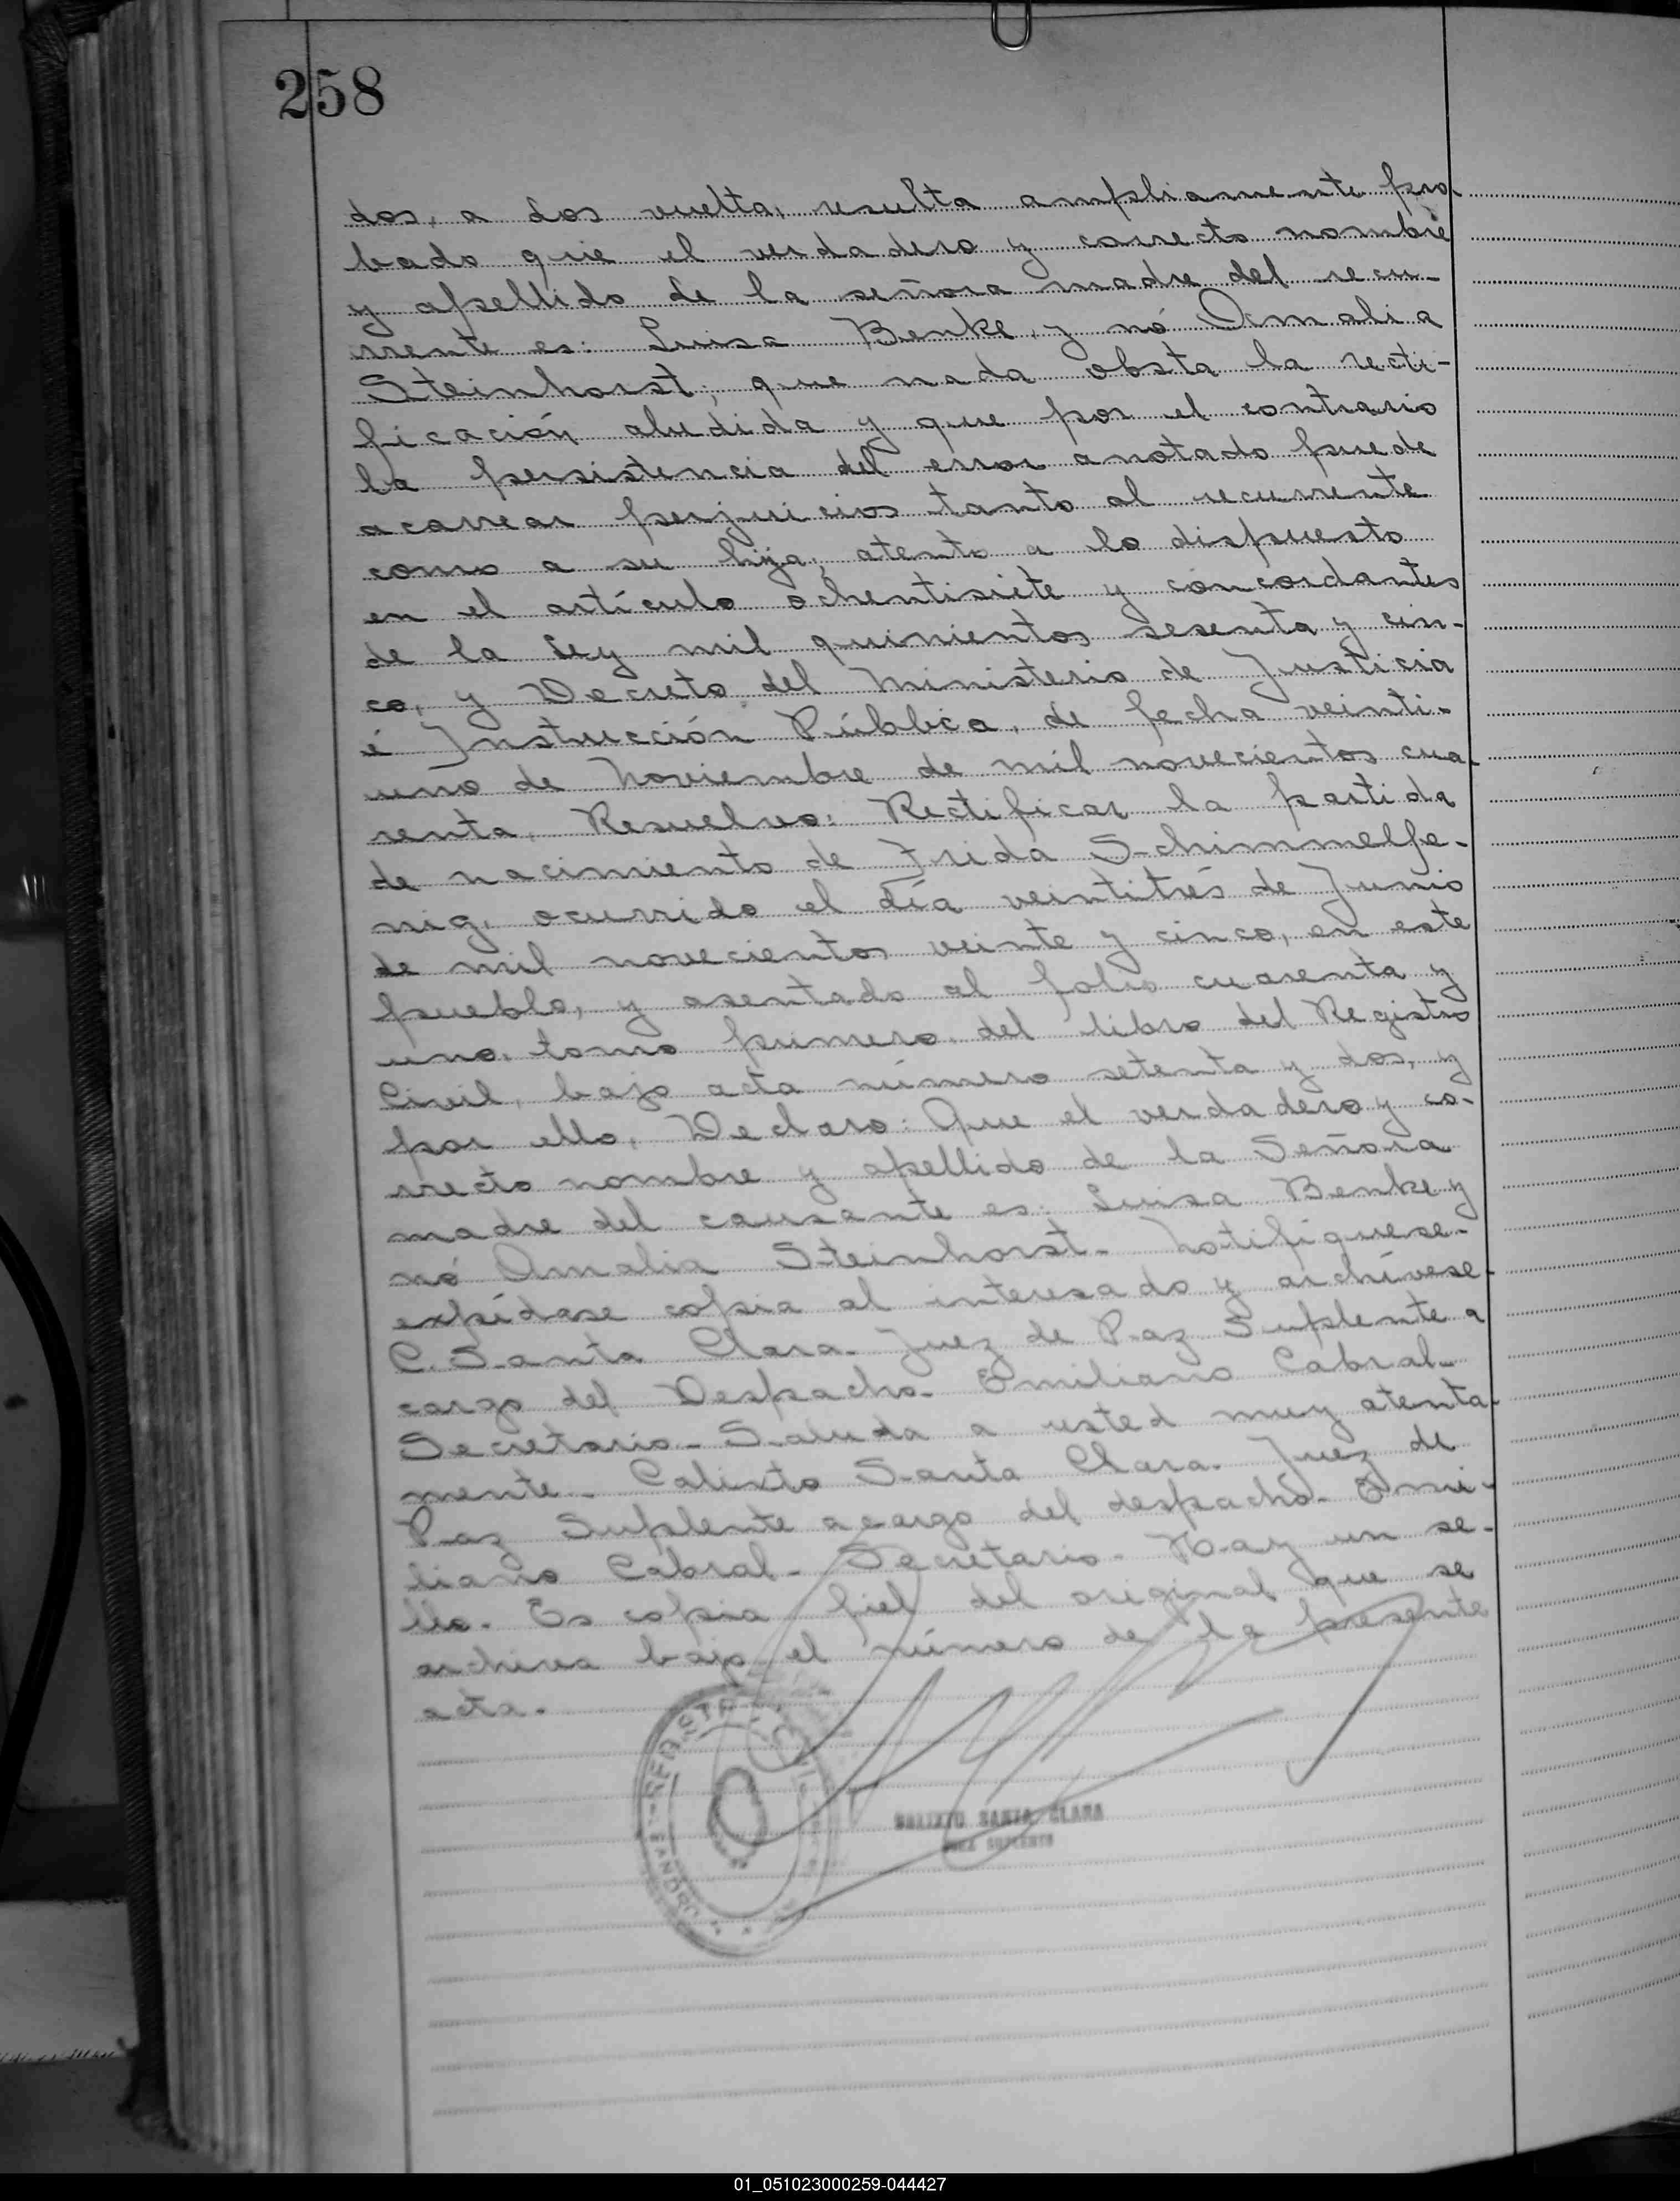 258
dos, a dos vuelta, resulta ampliamente pro-
bado que el verdadero y correcto nombre
y apellido de la señora madre del recu-
rrente es: Luisa Benke, y nó Amalia
Steinhorst; que nada obsta la recti-
ficación aludida y que por el contrario
la persistencia del error anotado puede
acarrear perjuicios tanto al recurrente
como a su hija; atento a lo dispuesto
en el artículo ochentisiete y concordantes
de la Ley mil quinientos sesenta y cin-
co, y Decreto del Ministerio de Justicia
é Instrucción Pública, de fecha veinti-
uno de Noviembre de mil novecientos cua-
renta, Resuelvo: Rectificar la partida
de nacimiento de Frida Schimmelfe-
nig, ocurrido el día veintitrés de Junio
de mil novecientos veinte y cinco, en este
pueblo, y asentado al folio cuarenta y
uno, tomo primero, del libro del Registro
Civil, bajo acta número setenta y dos, y
por ello, Declaro: Que el verdadero y co-
rrecto nombre y apellido de la Señora
madre del causante es: Luisa Benke y
nó Amalia Steinhorst- Notifiquese-
expídase copia al interesado y archívese-
C. Santa Clara- Juez de Paz Suplente a
cargo del Despacho- Emiliano Cabral-
Secretario- Saluda a usted muy atenta-
mente- Calixto Santa Clara- Juez de
Paz Suplente a cargo del despacho- Emi-
liano Cabral- Secretario- Hay un se-
llo- Es copia fiel del original que se
archiva bajo el número de la presente
acta.
REGISTRO
CALIXTO SANTA CLARA
JUEZ SUPLENTE
01_051023000259-044427